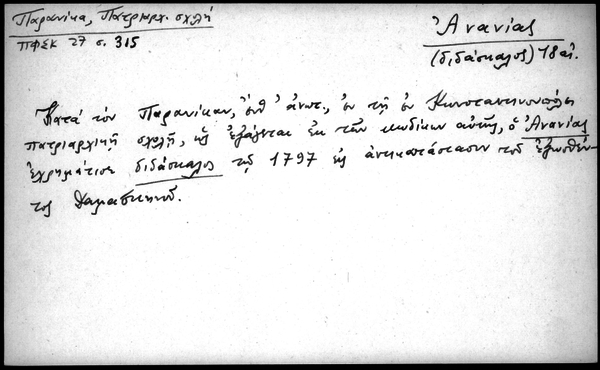 Παρανίκα, Πατριαρχ. σχολή
ΠΦΣΚ 27 σ. 315
Ἀνανίας
(διδάσκαλος) 18 αἰ.
Κατά τόν Παρανίκαν, ἔνθ' ἀνωτ., ἐν τῇ ἐν Κωνσταντινουπόλει
πατριαρχικῇ σχολῇ, ὡς ἐξάγεται ἐκ τῶν κωδίκων αὐτῆς, ὁ Ἀνανίας
ἐχρημάτισε διδάσκαλος τῷ 1797 εἰς ἀντικατάστασιν τοῦ ἐξωσθέν-
τος Δαμασκηνοῦ.